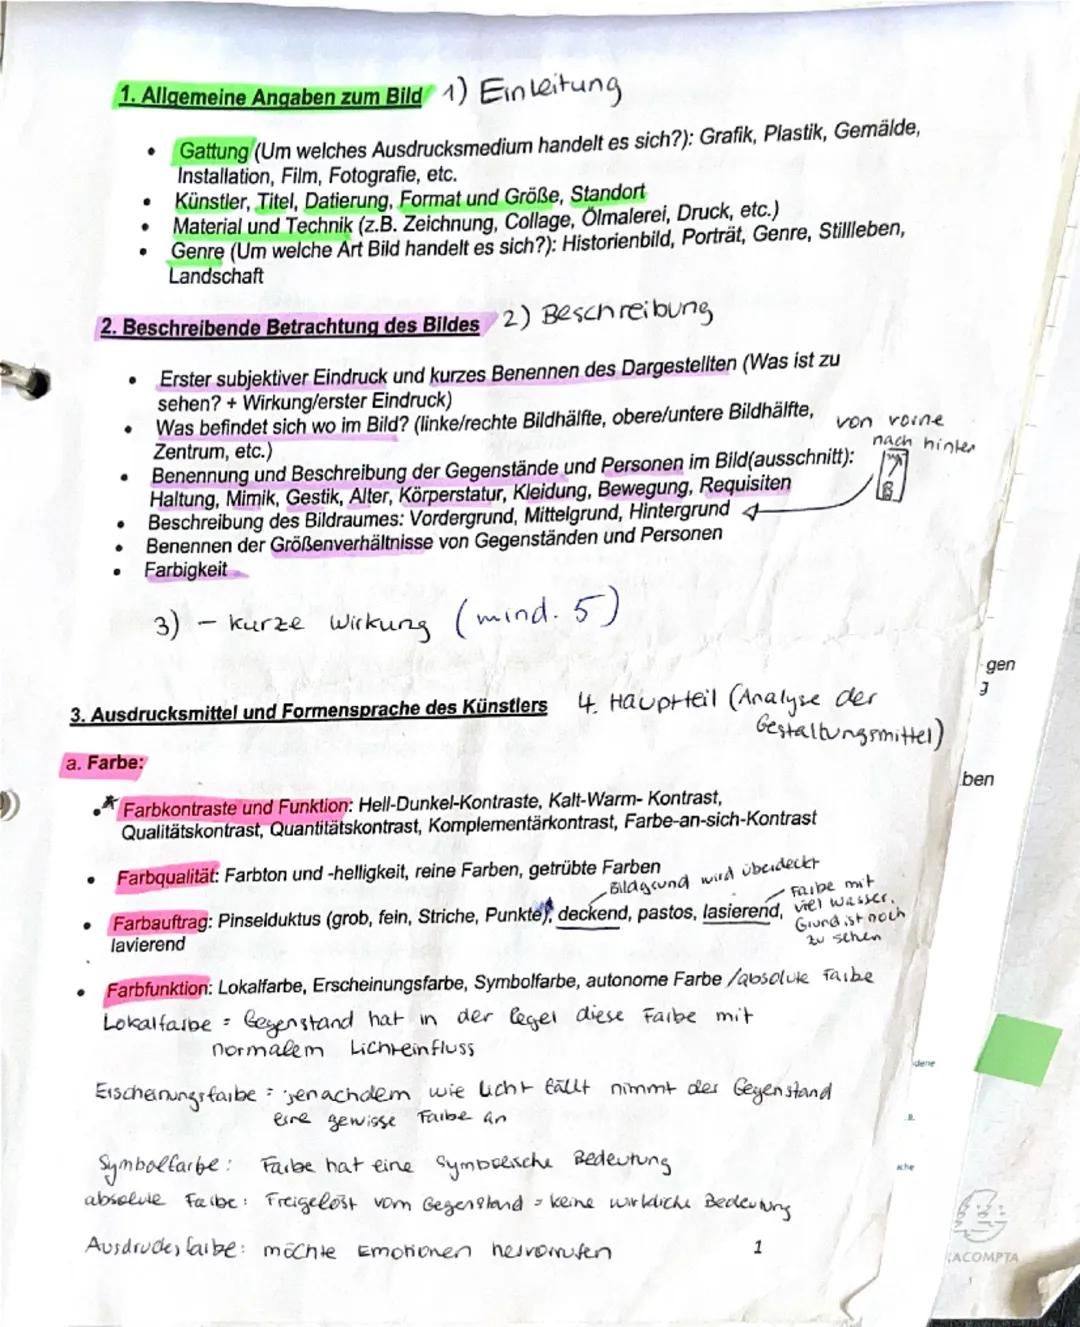 1. Allgemeine Angaben zum Bild 1) Einleitung
• Gattung (Um welches Ausdrucksmedium handelt es sich?): Grafik, Plastik, Gemälde,
Installation, Film, Fotografie, etc.
• Künstler, Titel, Datierung, Format und Größe, Standort
• Material und Technik (z.B. Zeichnung, Collage, Ölmalerei, Druck, etc.)
• Genre (Um welche Art Bild handelt es sich?): Historienbild, Porträt, Genre, Stillleben,
Landschaft
2. Beschreibende Betrachtung des Bildes 2) Beschreibung
• Erster subjektiver Eindruck und kurzes Benennen des Dargestellten (Was ist zu
sehen? + Wirkung/erster Eindruck)
• Was befindet sich wo im Bild? (linke/rechte Bildhälfte, obere/untere Bildhälfte,
Zentrum, etc.)
von vorne
nach hinten
• Benennung und Beschreibung der Gegenstände und Personen im Bild(ausschnitt):
Haltung, Mimik, Gestik, Alter, Körperstatur, Kleidung, Bewegung, Requisiten
• Beschreibung des Bildraumes: Vordergrund, Mittelgrund, Hintergrund
• Benennen der Größenverhältnisse von Gegenständen und Personen
• Farbigkeit
3) - kurze Wirkung (mind. 5)
gen
3. Ausdrucksmittel und Formensprache des Künstlers 4. Hauptteil (Analyse der
Gestaltungsmittel)
a. Farbe:
ben
• Farbkontraste und Funktion: Hell-Dunkel-Kontraste, Kalt-Warm- Kontrast,
Qualitätskontrast, Quantitätskontrast, Komplementärkontrast, Farbe-an-sich-Kontrast
• Farbqualität: Farbton und -helligkeit, reine Farben, getrübte Farben
Bildgrund wird überdeckt
• Farbauftrag: Pinselduktus (grob, fein, Striche, Punkte), deckend, pastos, lasierend,
lavierend
Farbe mit
viel Wasser.
Grund ist noch
zu sehen
• Farbfunktion: Lokalfarbe, Erscheinungsfarbe, Symbolfarbe, autonome Farbe /absolute Farbe
Lokalfarbe = Gegenstand hat in der Regel diese Farbe mit
normalem Lichteinfluss
Erscheinungsfarbe = jenachdem wie Licht fällt nimmt der Gegenstand
eine gewisse Farbe an
Symbolfarbe: Farbe hat eine symbolische Bedeutung
absolute Farbe: Freigelöst vom Gegenstand = keine wirkliche Bedeutung
Ausdrucksfarbe: möchte Emotionen hervorrufen
1
ACOMPTA